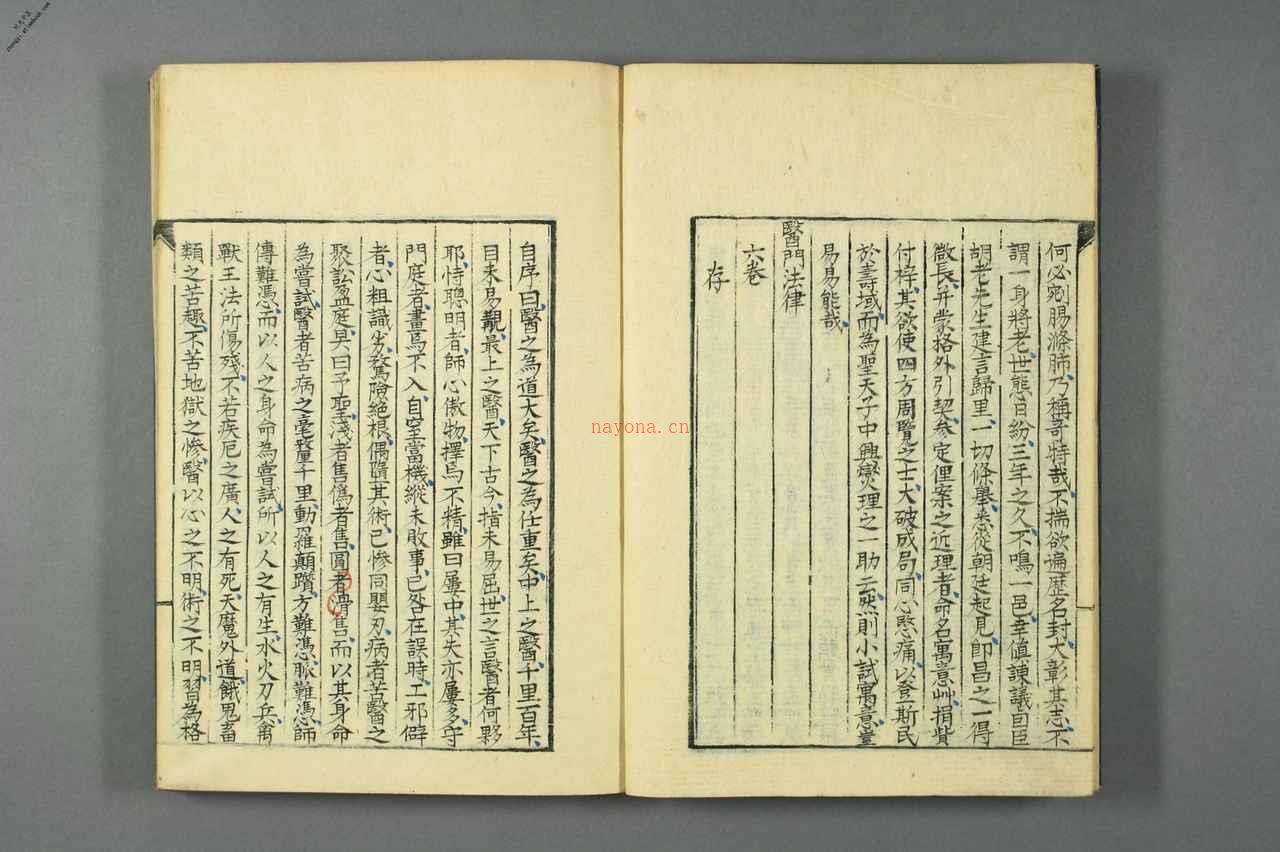 何必剜腸滌肺乃稱奇特哉不揣欲遍歷名封大彰其志不
謂一身將老世態日紛三年之久不鳴一邑幸値諌議卣臣
胡老先生建言歸里一切條舉悉從朝廷起見即昌之一得
微長并蒙格外引契參定俚案之近理者命名寓意艸捐貲
付梓其欲使四方周覽之士大破成局同心愍痛以登斯民
於壽域而為聖天子中興燮理之一助云然則小試寓意豈
易易能哉
醫門法律
六卷
存
自序曰醫之為道大矣醫之為任重矣中上之醫千里百年
目未易覯最上之醫天下古今指未易屈世之言醫者何夥
耶恃聰明者師心傲物擇焉不精雖曰屢中其失亦屢多守
門庭者畫焉不入自窒當機縱未敗事已咎在誤時工邪僻
者心粗識劣騖險絶根偶墮其術已慘同嬰刃病者苦醫之
聚訟盈庭具曰予聖淺者售僞者售圓者滑售而以其身命
為嘗試醫者苦病之毫釐千里動罹顛躓方難憑脈難憑師
傳難憑而以人之身命為嘗試所以人之有生水火刀兵禽
獸王法所傷殘不若疾厄之廣人之有死天魔外道餓鬼畜
類之苦趣不苦地獄之慘醫以心之不明術之不明習為格
nayona.cn